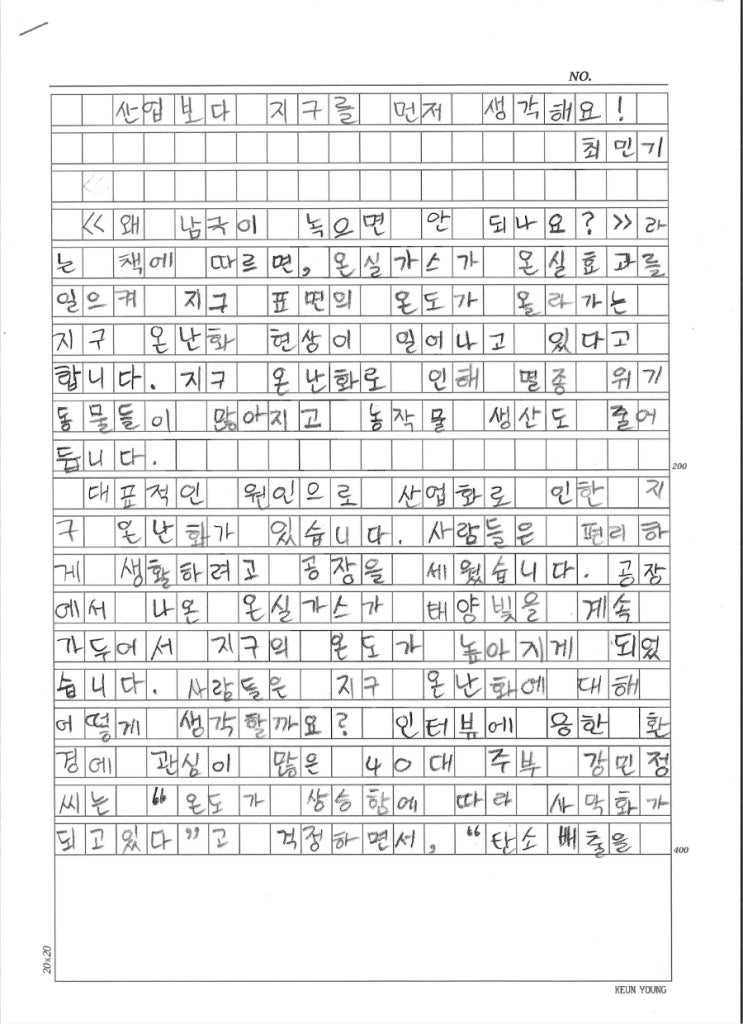 NO.
산업보다 지구를 먼저 생각해요!
최민기
<<왜 남극이 녹으면 안 되나요?>>라
는 책에 따르면, 온실가스가 온실효과를
일으켜 지구 표면의 온도가 올라가는
지구 온난화 현상이 일어나고 있다고
합니다. 지구 온난화로 인해 멸종 위기
동물들이 많아지고 농작물 생산도 줄어
듭니다.
200
대표적인 원인으로 산업화로 인한 지
구 온난화가 있습니다. 사람들은 편리하
게 생활하려고 공장을 세웠습니다. 공장
에서 나온 온실가스가 태양빛을 계속
가두어서 지구의 온도가 높아지게 되었
습니다. 사람들은 지구 온난화에 대해
어떻게 생각할까요? 인터뷰에 응한 환
경에 관심이 많은 40대 주부 강민정
씨는 “온도가 상승함에 따라 사막화가
되고있다”고 걱정하면서, “탄소배출을
400
20x20
KEUN YOUNG